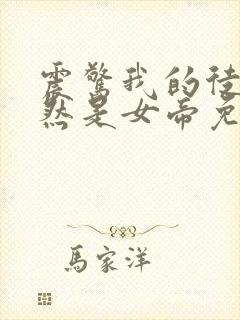 震驚我的徒
然是女帝免
馬家洋